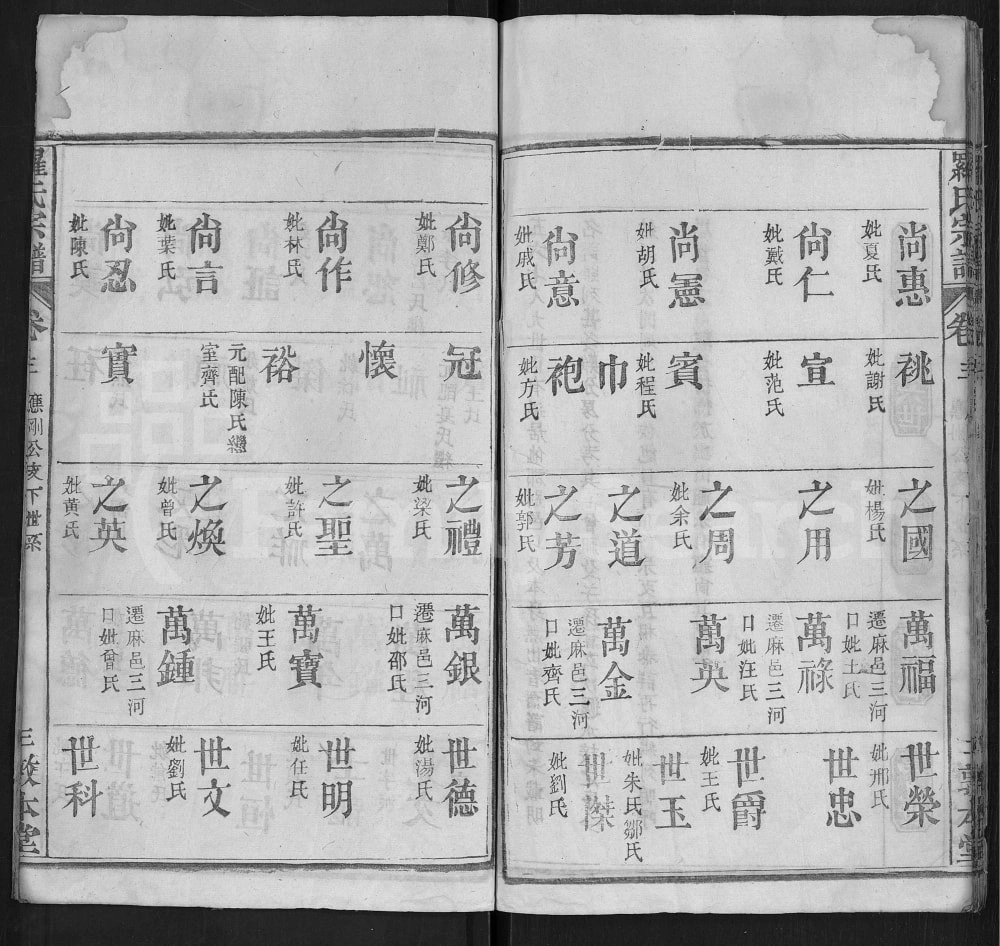 羅氏宗譜
卷三
敦本堂
尚惠
妣夏氏
尚仁
妣戴氏
尚憲
妣胡氏
尚意
妣戚氏
祧
妣謝氏
宣
妣范氏
賓
妣程氏
巾
袍
妣方氏
之國
妣楊氏
之用
之周
妣余氏
之道
之芳
妣郭氏
萬福
遷麻邑三河
口妣土氏
萬祿
遷麻邑三河
口妣汪氏
萬英
萬金
遷麻邑三河
口妣齊氏
世榮
妣邢氏
世忠
世爵
妣王氏
世玉
妣朱氏鄒氏
世傑
妣劉氏
尚修
妣鄭氏
尚作
妣林氏
尚言
妣葉氏
尚忍
妣陳氏
冠
懷
裕
元配陳氏繼
室齊氏
實
之禮
妣梁氏
之聖
妣許氏
之煥
妣曾氏
之英
妣黃氏
萬銀
遷麻邑三河
口妣邵氏
萬寶
妣王氏
萬鍾
遷麻邑三河
口妣曾氏
世德
妣湯氏
世明
妣任氏
世文
妣劉氏
世科
羅氏宗譜
卷三
應剛公支下世系
三
敦本堂